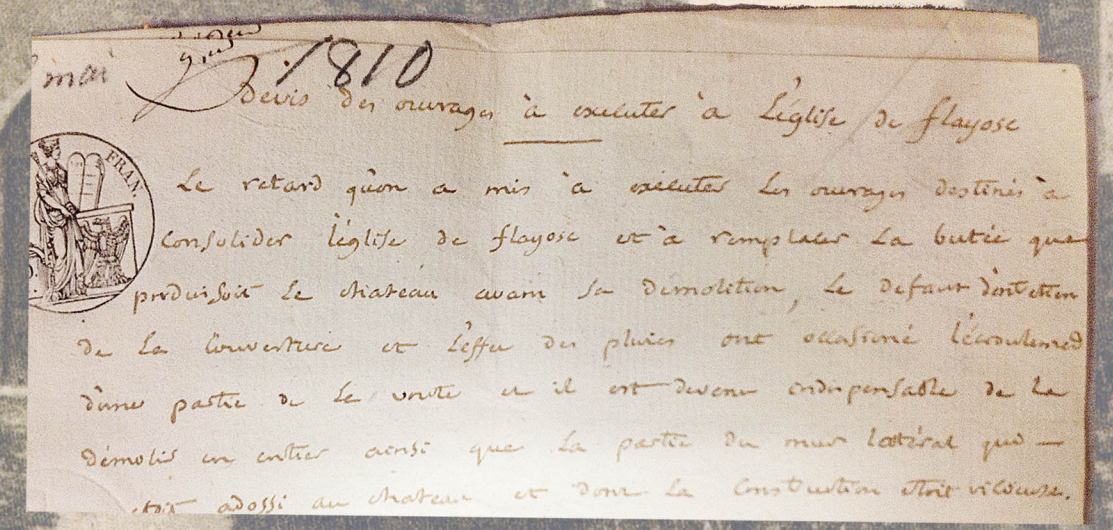 mai
1810
devis des ouvrages à exécuter à L'église de flayosc
Le retard qu'on a mis à exécuter Les ouvrages destinés à
Consolider l'église de flayosc et à remplacer La butée que
produisoit Le chateau avant sa démolition, Le defaut d'entretien
de La Couverture et L'effet des pluies ont occasioné l'écroulement
d'une partie de La voute et il est devenu indispensable de la
démolir en entier ainsi que La partie du mur latéral qui
etoit adossé au chateau et dont La Construction etoit vicieuse.
FRAN